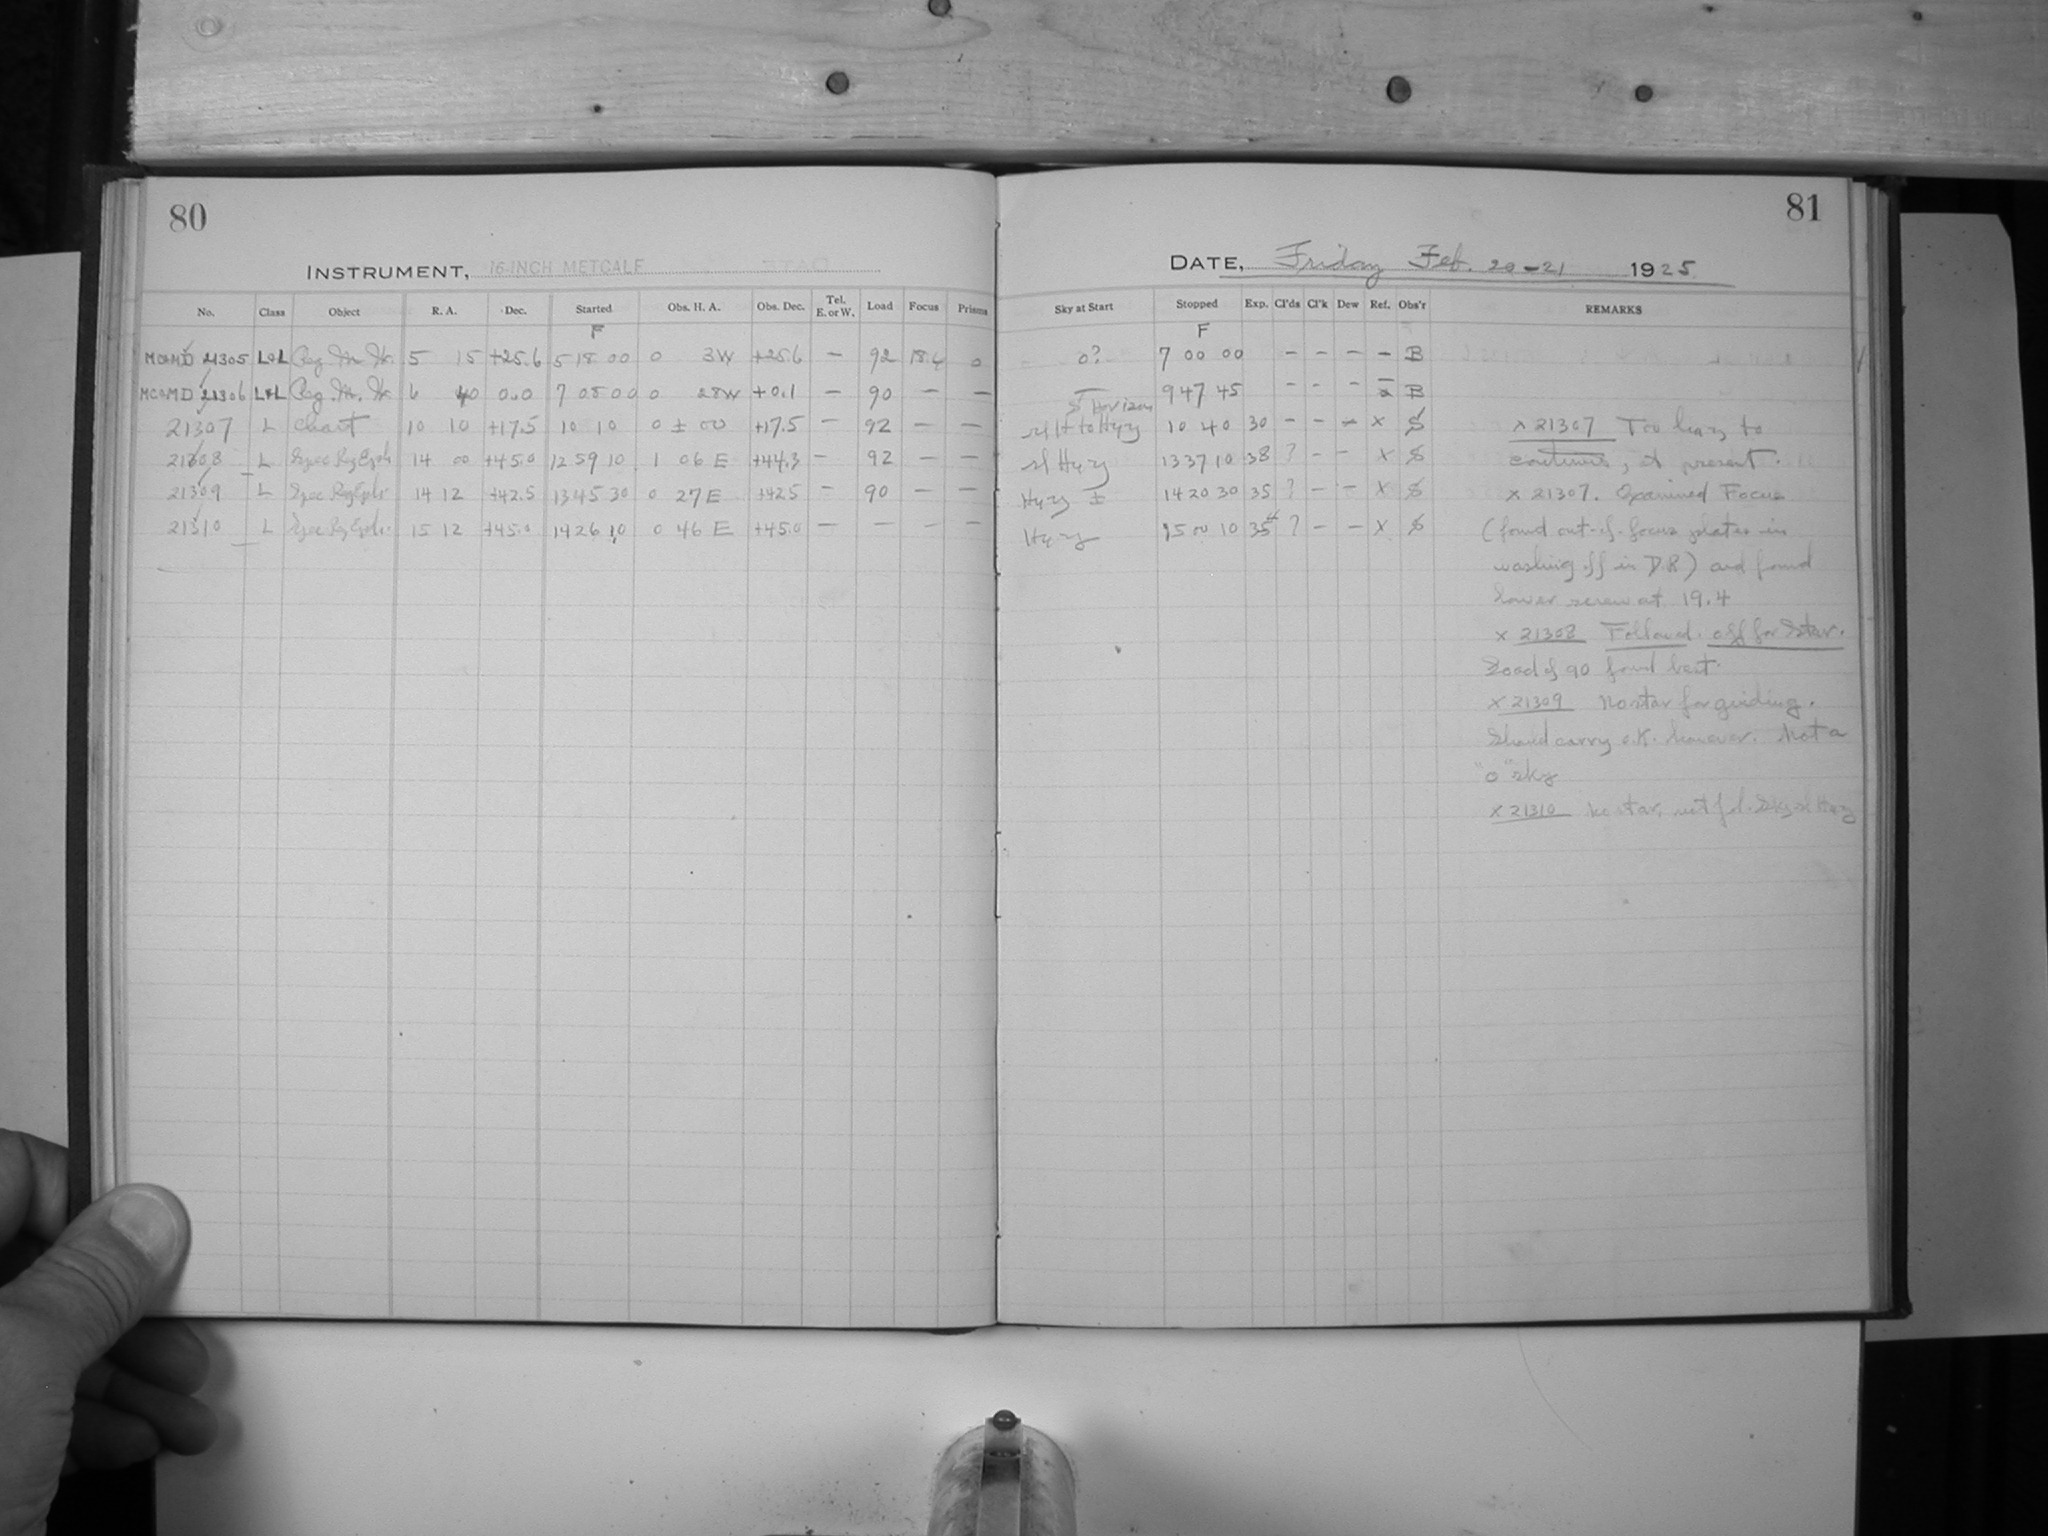 80
INSTRUMENT, 16-INCH METCALF
No. Class Object R. A. Dec. Started Obs. H. A. Obs. Dec. Tel. E. or W. Load Focus Prisms
F
MC&MD 21305 L&L Reg. 5 15 +25.6 5 18 00 0 3W +25.6 — 92 18.6 0
MC&MD 21306 L&L Reg. 6 40 0.0 7 05 00 0 28W +0.1 — 90 — —
21307 L Chart 10 10 +17.5 10 10 0 ± 00 +17.5 — 92 — —
21308 L Spec Reg 14 00 +45.0 12 59 10 1 06 E +44.3 — 92 — —
21309 L Spec Reg 14 12 +42.5 13 45 30 0 27 E +42.5 — 90 — —
21310 L Spec Reg 15 12 +45.0 14 26 10 0 46 E +45.0 — — — —
81
DATE, Friday Feb. 20-21 1925
Sky at Start Stopped Exp. Cl'ds Cl'k Dew Ref. Obs'r REMARKS
F
0? 7 00 00 – – – – B
9 47 45 – – – x B
S Horizon
sl H to Hzy 10 40 30 – – – x S
sl Hzy 13 37 10 38 ? – – x S
Hzy ± 14 20 30 35 ? – – x S
Hzy 15 00 10 35 ? – – x S
x 21307 Too hazy to
continue, at present.
x 21307. Examined Focus
(found out-of-focus plates in
washing off in D.R) and found
lower screw at 19.4
x 21308 Followed. off for Star.
Load of 90 found best.
x 21309 No star for guiding.
Should carry o.K. however. Not a
"0" sky
x 21310 No star, not fol. Sky sl Hazy